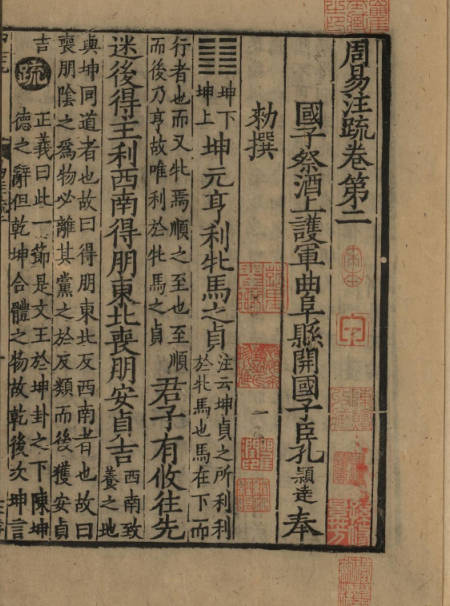 周易注疏卷第二
國子祭酒上護軍曲阜縣開國子臣孔頴達奉
勑撰
䷁
坤下
坤上
坤元亨利牝馬之貞
注云坤貞之所利利
於牝馬也馬在下而
行者也而又牝焉順之至也至順
而後乃亨故唯利於牝馬之貞
君子有攸往先
迷後得主利西南得朋東北喪朋安貞吉
西南致
養之地
與坤同道者也故曰得朋東北反西南者也故曰
喪朋陰之爲物必離其黨之於反類而後獲安貞
吉
疏
正義曰此一節是文王於坤卦之下陳坤
德之辭但乾坤合體之物故乾後次坤言